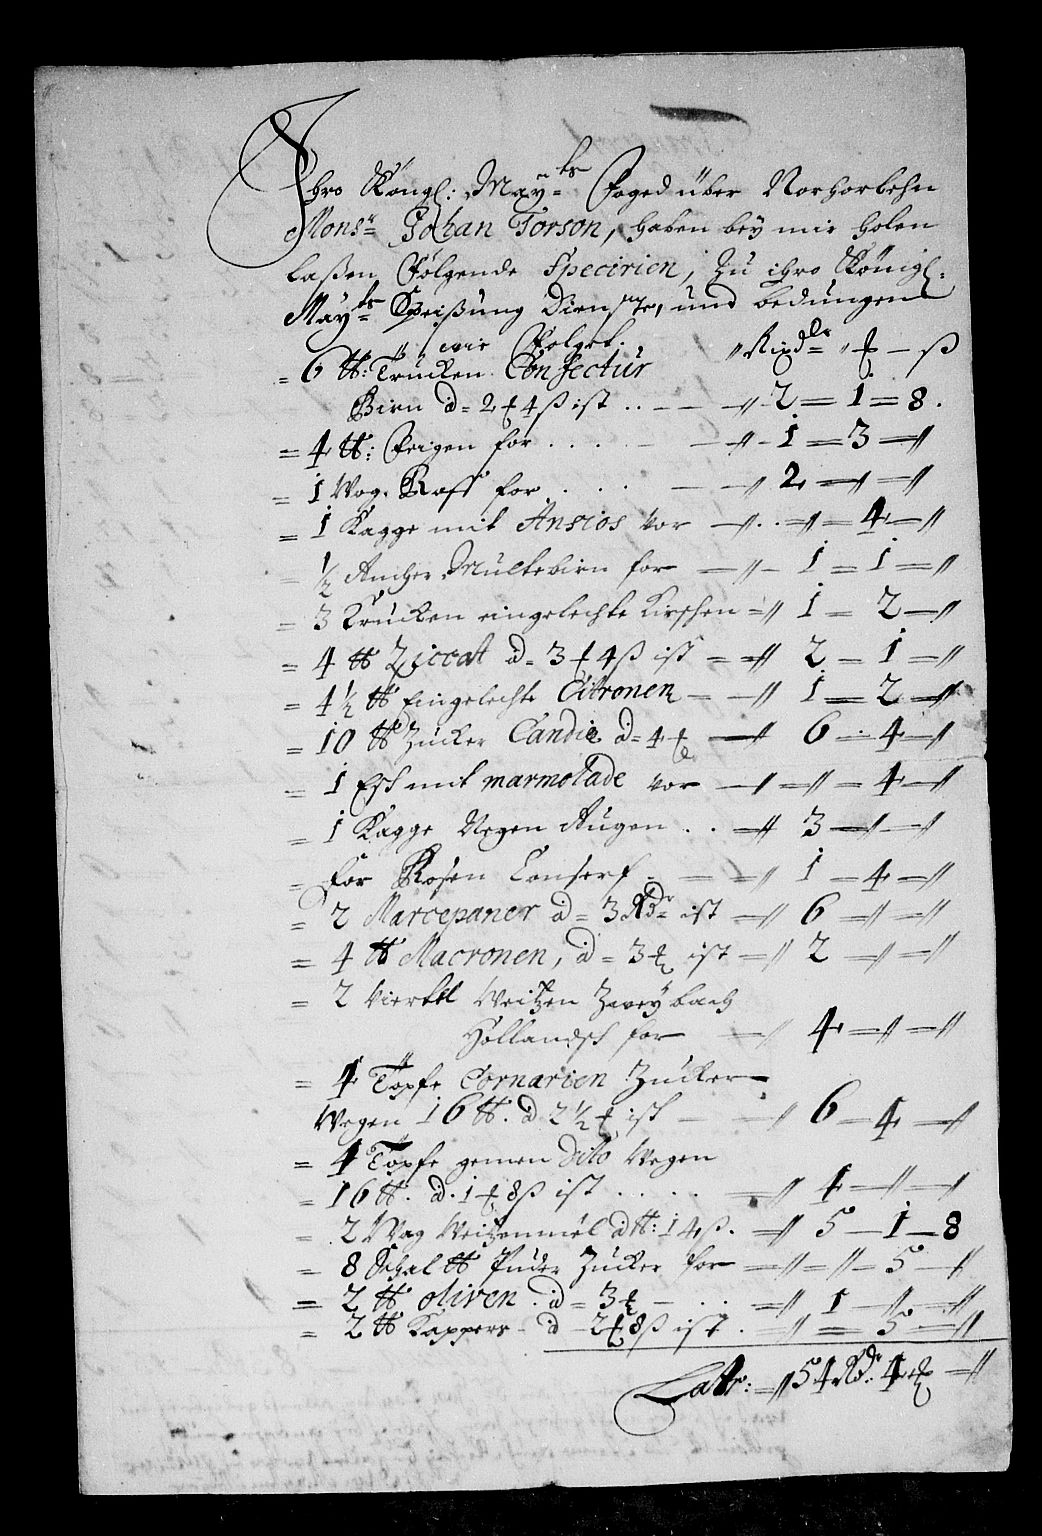 Ihro Köngl: Mayⁿ=ts Foged über Norhorlehn
Monsr= Johan Torson, haben bey mir holen
laßen Folgende Specirien, Zu ihro Königl=
Mayts= Speißung Dienste, und bedungen
wie Folget. Rixdlr= ₰ — ß
= 6 ℔: Trucken Confectur
Birn a= 2 ₰ 4 ß ist .. — — 2 = 1 = 8.
= 4 ℔: Feigen for . . . . — — 1 = 3 — //
= 1 Wog. Raff for . . . . — — 2 — // — //
= 1 Kagge mit Ansios vor — // . . — // — 4 — //
= ½ Ancher Multebirn for — // — 1 = 1 = //
= 3 Krucken eingelechte Kirschen = // 1 = 2 — //
= 4 ℔ Ziccat a= 3 ₰ 4 ß ist = // 2 — 1 — //
= 4½ ℔ Eingelechte Citronen — — // 1 = 2 — //
= 10 ℔ Zucker Candie a= 4 ₰ — // 6 . 4 — //
= 1 Esk mit marmolade vor — // = // — 4 — //
= 1 Kagge Negen Augen . . — // 3 — // — //
= For Rosen Conserf . — — // 1 — 4 — //
= 2 Marcepaner a= 3 Rdr= ist — // 6 — // — //
= 4 ℔ Macronen, a= 3 ₰ ist — // 2 — // — //
= 2 Viertel Weitzen Zweybach
Hollandsch for — // 4 — // — //
= 4 Töpfe Cornarien Zucker
Wegen 16 ℔. a 2½ ₰ ist — — // 6 — 4 — //
= 4 Töpfe gemen Dito Wegen
= 16 ℔. a. 1 ₰ 8 ß ist . . . . . — // 4 — // — //
= 2 Wag Weitzenmêl a ℔: 14 ß. — // 5 — 1 — 8
= 8 Schal ℔ Puder Zucker for — // — // — 5 — //
= 2 ℔ oliven . a= 3 ₰ — . . — // 1 — // — //
= 2 ℔ Kappers — a — 2 ₰ 8 ß ist . — // = 5 = //
Latr: = // 54 Rdr: 4 ₰ — //